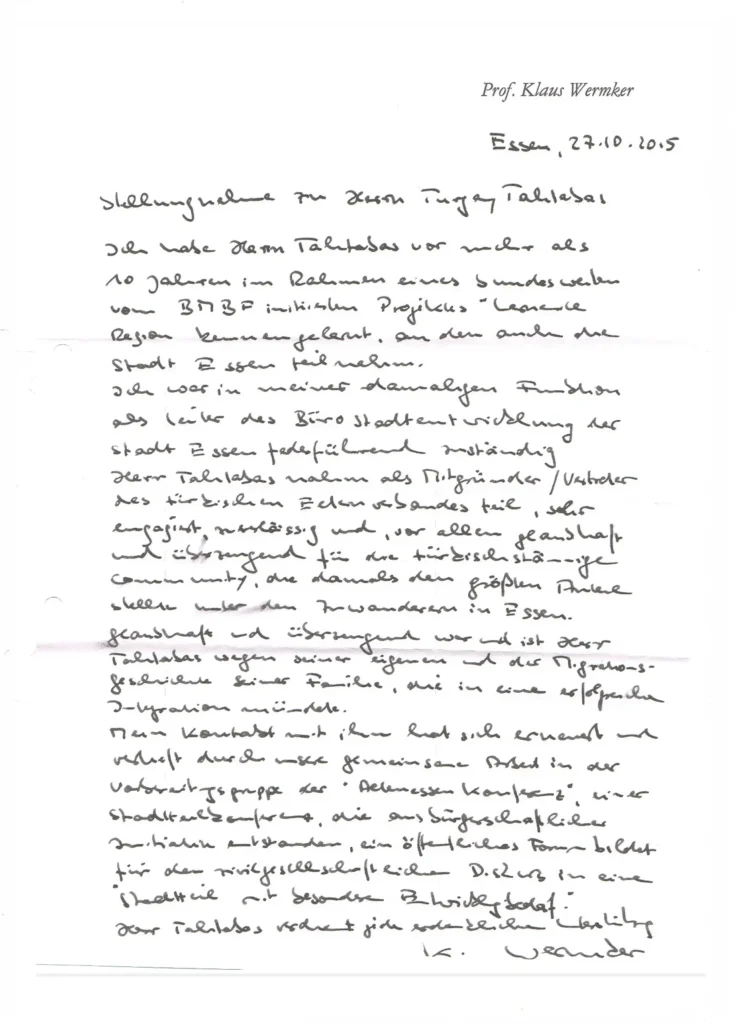 Prof. Klaus Wermker
Essen, 27.10.2015
Stellungnahme zu Herrn Turgay Tahtabas
Ich habe Herrn Tahtabas vor mehr als
10 Jahren im Rahmen eines bundesweiten
vom BMBF initiierten Projektes "Lernende
Region kennengelernt, an dem auch die
Stadt Essen teilnahm.
Ich war in meiner damaligen Funktion
als Leiter des Büro Stadtentwicklung der
Stadt Essen federführend zuständig
Herr Tahtabas nahm als Mitgründer / Vertreter
des türkischen Elternverbandes teil, sehr
engagiert, zuverlässig und, vor allem glaubhaft
und überzeugend für die türkischstämmige
Community, die damals den größten Anteil
stellte unter den Zuwanderern in Essen.
Glaubhaft und überzeugend war und ist Herr
Tahtabas wegen seiner eigenen und der Migrations-
geschichte seiner Familie, die in eine erfolgreiche
Integration mündete.
Mein Kontakt mit ihm hat sich erneuert und
vertieft durch unsere gemeinsame Arbeit in der
Vorbereitungsgruppe der "Altenessen Konferenz", einer
Stadtteilkonferenz, die aus bürgerschaftlicher
Initiative entstanden, ein öffentliches Forum bildet
für den zivilgesellschaftlichen Diskurs in eine
"Stadtteil mit besonderem Entwicklungsbedarf".
Herr Tahtabas verdient jede erdenkliche
K. Wermker